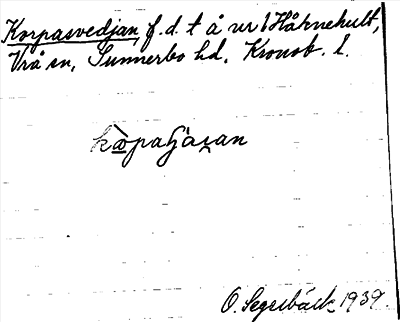 Korpasvedjan, f.d. t å ur Håknehult,
Vrå sn, Sunnerbo hd. Kronob. l.
O. Segebäck 1939.